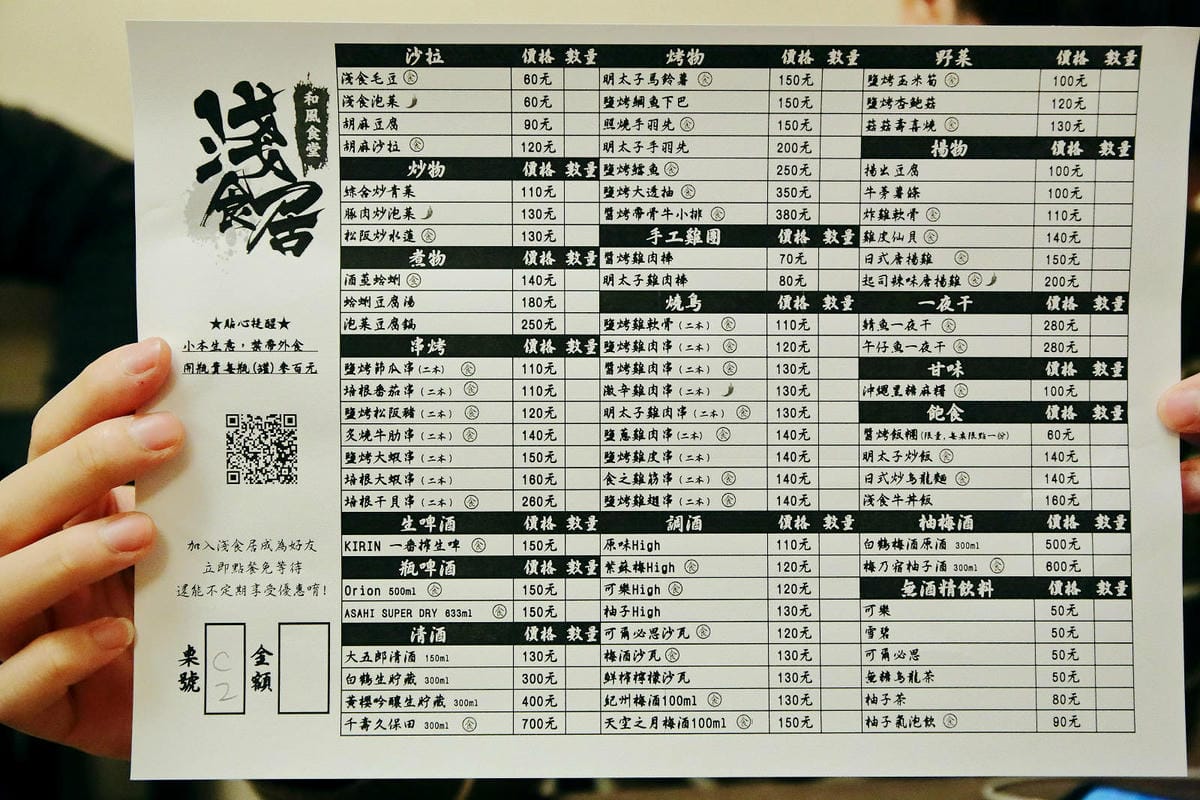 和風食堂
淺食居
★貼心提醒★
小本生意，禁帶外食
開瓶費每瓶(罐)參百元
加入淺食居成為好友
立即點餐免等待
還能不定期享受優惠唷!
桌號 C2 金額
沙拉 價格 數量
淺食毛豆 食 60元
淺食泡菜 60元
胡麻豆腐 90元
胡麻沙拉 食 120元
炒物 價格 數量
綜合炒青菜 110元
豚肉炒泡菜 130元
松阪炒水蓮 食 130元
煮物 價格 數量
酒蒸蛤蜊 食 140元
蛤蜊豆腐湯 180元
泡菜豆腐鍋 250元
串烤 價格 數量
鹽烤節瓜串(二本) 食 110元
培根番茄串(二本) 食 110元
鹽烤松阪豬(二本) 食 120元
炙燒牛肋串(二本) 食 140元
鹽烤大蝦串(二本) 150元
培根大蝦串(二本) 160元
培根干貝串(二本) 食 260元
生啤酒 價格 數量
KIRIN 一番搾生啤 食 150元
瓶啤酒 價格 數量
Orion 500ml 食 150元
ASAHI SUPER DRY 633ml 食 150元
清酒 價格 數量
大五郎清酒 150ml 130元
白鶴生貯藏 300ml 300元
黃櫻吟釀生貯藏 300ml 400元
千壽久保田 300ml 食 700元
烤物 價格 數量
明太子馬鈴薯 食 150元
鹽烤鯛魚下巴 150元
照燒手羽先 食 150元
明太子手羽先 200元
鹽烤鱈魚 食 250元
鹽烤大透抽 食 350元
醬烤帶骨牛小排 食 380元
手工雞團 價格 數量
醬烤雞肉棒 70元
明太子雞肉棒 80元
燒鳥 價格 數量
鹽烤雞軟骨(二本) 食 110元
鹽烤雞肉串(二本) 食 120元
醬烤雞肉串(二本) 食 130元
激辛雞肉串(二本) 130元
明太子雞肉串(二本) 食 130元
鹽蔥雞肉串(二本) 食 140元
鹽烤雞皮串(二本) 140元
食之雞筋串(二本) 食 140元
鹽烤雞翅串(二本) 食 140元
調酒 價格 數量
原味High 110元
紫蘇梅High 食 120元
可樂High 食 130元
柚子High 130元
可爾必思沙瓦 食 120元
梅酒沙瓦 食 130元
鮮榨檸檬沙瓦 130元
紀州梅酒100ml 食 130元
天空之月梅酒100ml 食 150元
野菜 價格 數量
鹽烤玉米筍 食 100元
鹽烤杏鮑菇 120元
菇菇壽喜燒 食 130元
揚物 價格 數量
揚出豆腐 100元
牛蒡薯條 100元
炸雞軟骨 食 110元
雞皮仙貝 食 140元
日式唐揚雞 食 150元
起司辣味唐揚雞 食 200元
一夜干 價格 數量
鯖魚一夜干 食 280元
午仔魚一夜干 食 280元
甘味 價格 數量
沖繩黑糖麻糬 食 100元
飽食 價格 數量
醬烤飯糰(限量,每桌限點一份) 60元
明太子炒飯 食 140元
日式炒烏龍麵 食 140元
淺食牛丼飯 160元
柚梅酒 價格 數量
白鶴梅酒原酒 300ml 500元
梅乃宿柚子酒 300ml 食 600元
無酒精飲料 價格 數量
可樂 50元
雪碧 50元
可爾必思 50元
無糖烏龍茶 50元
柚子茶 80元
柚子氣泡飲 食 90元